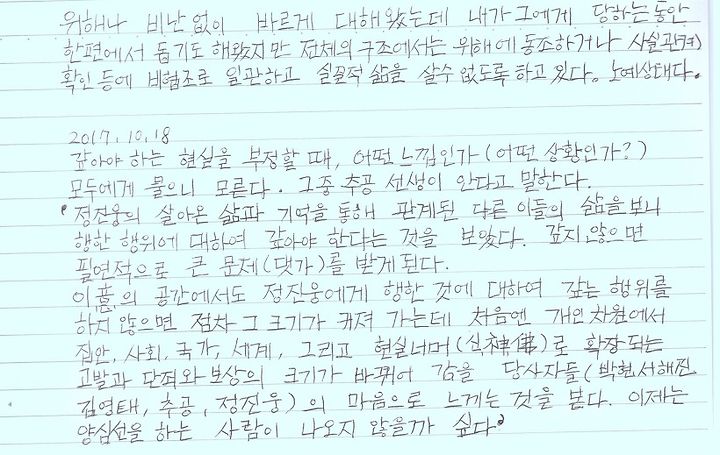 위해나 비난 없이 바르게 대해 왔는데 내가 그에게 당하는 동안
한편에서 돕기도 해왔지만 전체의 구조에서는 위해에 동조하거나 사실관계
확인 등에 비협조로 일관하고 실질적 삶을 살수 없도록 하고 있다. 노예상태다.
2017. 10. 18
갚아야 하는 현실을 부정할 때, 어떤 느낌인가 (어떤 상황인가?)
모두에게 물으니 모른다. 그중 추공 선생이 안다고 말한다.
"정진웅의 살아온 삶과 기억을 통해 관계된 다른 이들의 삶을 보니
행한 행위에 대하여 갚아야 한다는 것을 보았다. 갚지 않으면
필연적으로 큰 문제(댓가)를 받게 된다.
이 흠의 공간에서도 정진웅에게 행한 것에 대하여 갚는 행위를
하지 않으면 점차 그 크기가 커져 가는데 처음엔 개인 차원에서
집안, 사회, 국가, 세계, 그리고 현실너머(신神佛)로 확장되는
고발과 단죄와 보상의 크기가 바뀌어 감을 당사자들 (박현, 서해진,
김영태, 추공, 정진웅)의 마음으로 느끼는 것을 본다. 이제는
양심선을 하는 사람이 나오지 않을까 싶다"